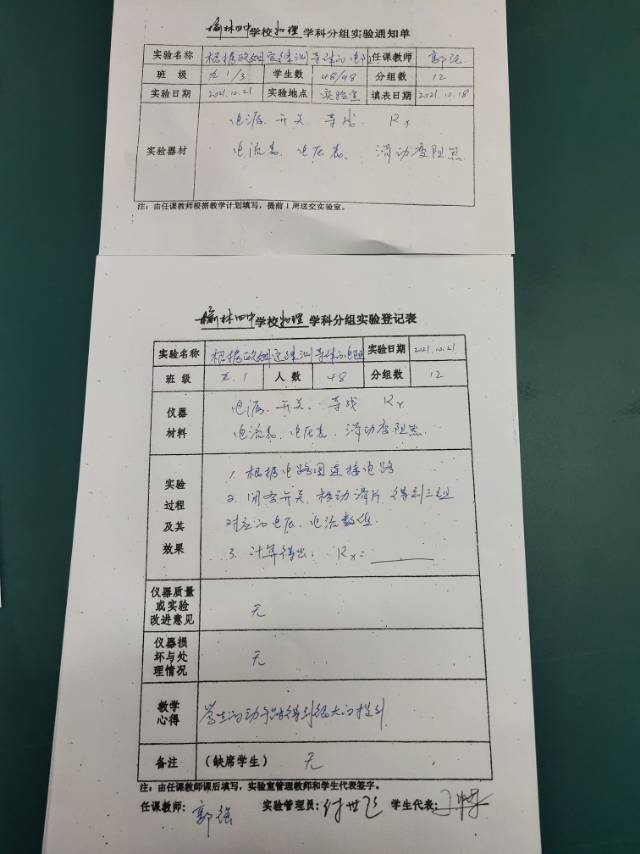 榆林四中学校物理学科分组实验通知单
实验名称 根据欧姆定律测导体的电阻 任课教师 郭强
班 级 九.1/3 学生数 48/48 分组数 12
实验日期 2021.10.21 实验地点 实验室 填表日期 2021.10.18
电源、开关、导线、Rx
实验器材 电流表、电压表、滑动变阻器
注：由任课教师根据教学计划填写，提前1周送交实验室。
榆林四中学校物理学科分组实验登记表
实验名称 根据欧姆定律测导体的电阻 实验日期 2021.10.21
班 级 九.1 人 数 48 分组数 12
仪器 电源、开关、导线 Rx
材料 电流表、电压表、滑动变阻器.
1. 根据电路图连接电路
实验 2. 闭合开关、移动滑片、得到三组
过程 对应的电压、电流数值.
及其
效果 3. 计算得出：Rx=______
仪器质量
或实验 无
改进意见
仪器损
坏与处 无
理情况
教学 学生的动手能得到很大的提升
心得
备注 （缺席学生） 无
注：由任课教师课后填写，实验室管理教师和学生代表签字。
任课教师：郭强 实验管理员：付世飞 学生代表：